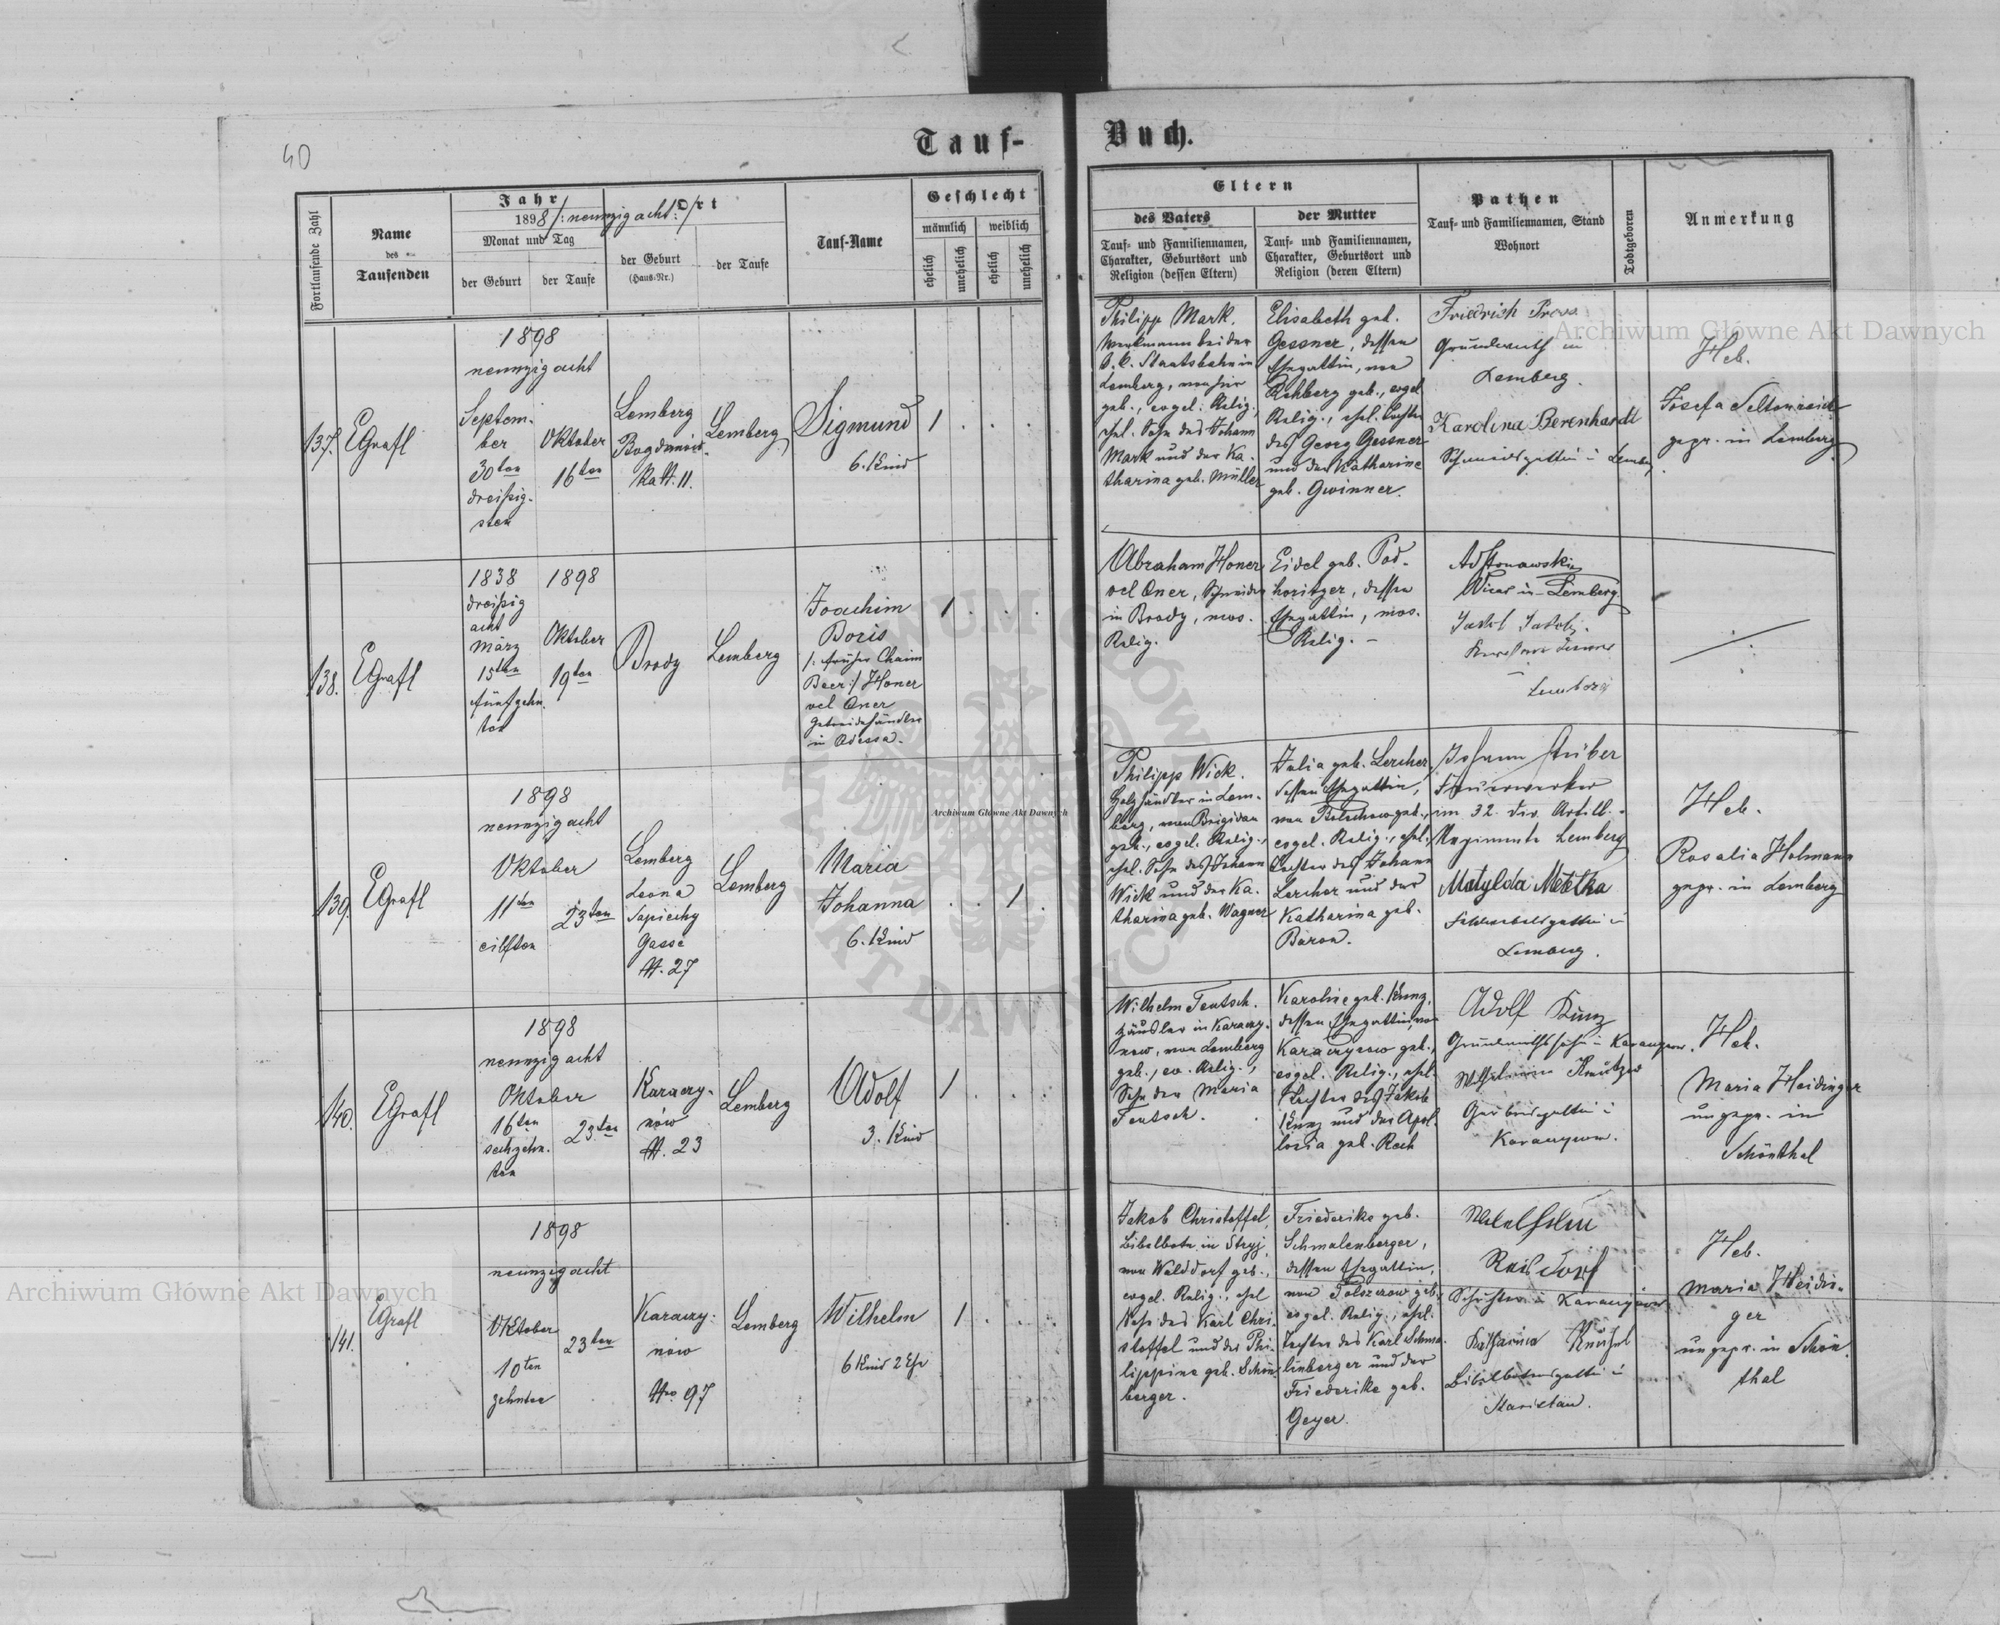 40
Tauf-
Buch.
Fortlaufende Zahl
Name
des
Taufenden
Jahr
1898 /: neunzig acht :/
Monat und Tag
der Geburt
der Taufe
Ort
der Geburt
(Haus-Nr.)
der Taufe
Tauf-Name
Geschlecht
männlich
weiblich
ehelich
unehelich
ehelich
unehelich
Eltern
des Vaters
Tauf- und Familiennamen,
Charakter, Geburtsort und
Religion (dessen Eltern)
der Mutter
Tauf- und Familiennamen,
Charakter, Geburtsort und
Religion (deren Eltern)
Pathen
Tauf- und Familiennamen, Stand
Wohnort
Todtgeboren
Anmerkung
137.
EGrafl
1898
neunzig acht
Septem-
ber
30ten
dreißig-
sten
Oktober
16ten
Lemberg
№ 11.
Lemberg
Sigmund
6. Kind
1
Philipp Mark.
Werkmann bei der
k. k. Staatsbahn in
Lemberg, von hier
geb., evgel. Relig.,
ehel. Sohn des Johann
Mark und der Ka-
tharina geb. Müller
Elisabeth geb.
Gessner, dessen
Ehegattin, von
Rehberg geb., evgel.
Relig., ehel. Tochter
des Georg Gessner
und der Katharine
geb. Gwinner.
Friedrich
Grundwirth in
Lemberg.
Karolina Berenhardt
Schmiedsgattin in Lemberg
Heb.
Josefa
gepr. in Lemberg
138.
EGrafl
1838
dreißig
acht
März
15ten
fünfzehn-
ten
1898
Oktober
19ten
Brody
Lemberg
Joachim
Boris
/: früher Chaim
Beer :/ Honer
vel Oner
Getreidehändler
in Odessa.
1
Abraham Honer
vel Oner, Schneider
in Brody, mos.
Relig.
Eidel geb. Pod-
horitzer, dessen
Ehegattin, mos.
Relig. –
Vicar in Lemberg
Lemberg
139.
EGrafl
1898
neunzig acht
Oktober
11ten
eilften
23ten
Lemberg
Leona
Sapiechy
Gasse
№. 27
Lemberg
Maria
Johanna
6. Kind
1
Philipp Wick.
Holzhändler in Lem-
berg, von Brigidau
geb., evgel. Relig.,
ehel. Sohn des Johann
Wick und der Ka-
tharina geb. Wagner
Julia geb. Lercher,
dessen Ehegattin,
von Bolechow geb.,
evgel. Relig., ehel.
Tochter des Johann
Lercher und der
Katharina geb.
Baron.
Johann Stüber
Feuerwerker
im 32. Div. Artill.-
Regiments Lemberg
Matylda Metelka
Feldwebelsgattin in
Lemberg.
Heb.
Rosalia Holmann
gepr. in Lemberg
140.
EGrafl
1898
neunzig acht
Oktober
16ten
sechzehn-
ten
23ten
Karaczy-
nów
№. 23
Lemberg
Adolf
3. Kind
1
Wilhelm Teutsch.
Häusler in Karaczy-
now, von Lemberg
geb., ev. Relig.,
Sohn der Maria
Teutsch.
Karoline geb. Kunz,
dessen Ehegattin, von
Karaczynow geb.,
evgel. Relig., ehel.
Tochter des Jakob
Kunz und der Apol-
lonia geb. Rech
Adolf Kunz
Grundwirthssohn in Karaczynow.
Wilhelmine Kreutzer
Gerbersgattin in
Karaczynow.
Heb.
Maria Heidinger
ungepr. in
Schönthal
141.
EGrafl
1898
neunzig acht
Oktober
10ten
zehnten
23ten
Karaczy-
nów
Nro 97
Lemberg
Wilhelm
6 Kind 2 Ehe
1
Jakob Christoffel,
Bibelbote in Stryj,
von Walddorf geb.,
evgel. Relig., ehel.
Sohn des Karl Chri-
stoffel und der Phi-
lippine geb. Schön-
berger.
Friederike geb.
Schmalenberger,
dessen Ehegattin,
von Tolszczow geb.
evgel. Relig., ehel.
Tochter des Karl Schma-
lenberger und der
Friederike geb.
Geyer.
Wilhelm
Reisdorf
Schuster in Karaczynow
Katharina
Bibelbotensgattin in
Heb.
Maria Heidin-
ger
ungepr. in Schön-
thal
Archiwum Główne Akt Dawnych
Archiwum Główne Akt Dawnych
Archiwum Główne Akt Dawnych